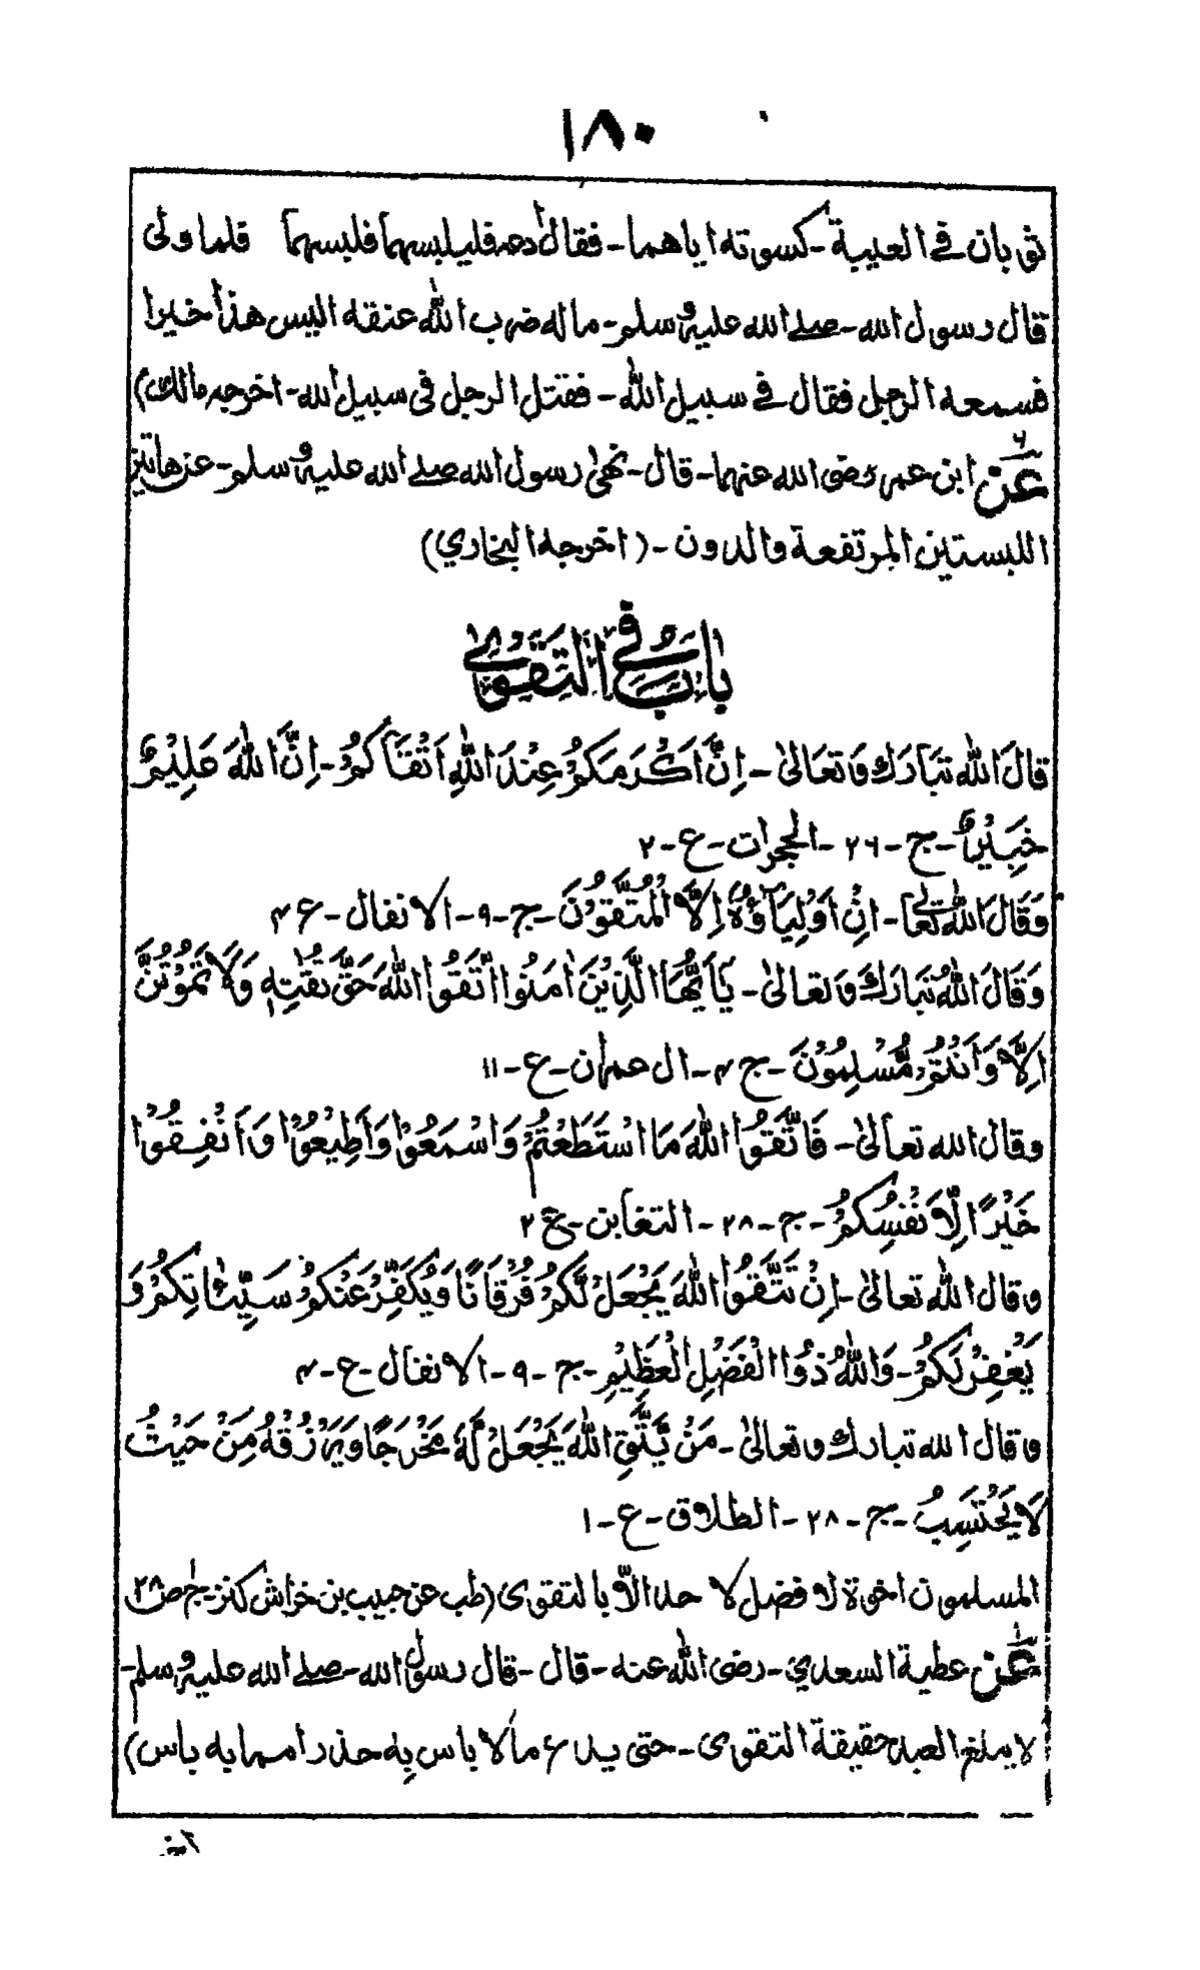 ١٨٠
ثوبان فى العيبة - كسوته اياهما - فقال ادعه فليلبسهما فلبسهما فلما ولى
قال رسول الله - صلى الله عليه وسلم - ماله ضرب الله عنقه اليس هذا خيرا
فسمعه الرجل فقال فى سبيل الله - فقتل الرجل فى سبيل الله - اخرجه مالك)
٢
عن ابن عمر رضى الله عنهما - قال - نهى رسول الله صلى الله عليه وسلم - عن هاتين
اللبستين المرتفعة والدون - (اخرجه البخاري)
بَابٌ فِى التَّقْوٰى
قَالَ اللهُ تَبَارَكَ وَتَعَالىٰ - اِنَّ اَكْرَمَكُمْ عِنْدَ اللهِ اَتْقَاكُمْ - اِنَّ اللهَ عَلِيْمٌ
خَبِيْرٌ - ج - ٢٦ - الحجرات - ع - ٢
وَقَالَ اللهُ تَعَالىٰ - اِنْ اَوْلِيَآؤُهٗ اِلَّا الْمُتَّقُوْنَ - ج - ٩ - الانفال - ع ٤
وَقَالَ اللهُ تَبَارَكَ وَتعالىٰ - يٰٓاَيُّهَا الَّذِيْنَ اٰمَنُوا اتَّقُوا اللهَ حَقَّ تُقٰتِهٖ وَلَا تَمُوْتُنَّ
اِلَّا وَاَنْتُمْ مُّسْلِمُوْنَ - ج ٤ - ال عمران - ع - ١١
وقال الله تعالىٰ - فَاتَّقُوا اللهَ مَا اسْتَطَعْتُمْ وَاسْمَعُوْا وَاَطِيْعُوْا وَاَنْفِقُوْا
خَيْرًا لِّاَنْفُسِكُمْ - ج - ٢٨ - التغابن - ع ٢
وقال الله تعالىٰ - اِنْ تَتَّقُوا اللهَ يَجْعَلْ لَّكُمْ فُرْقَانًا وَّيُكَفِّرْ عَنْكُمْ سَيِّئَاتِكُمْ وَ
يَغْفِرْ لَكُمْ - وَاللهُ ذُوا الْفَضْلِ الْعَظِيْمِ - ج - ٩ - الانفال - ع - ٤
وقال الله تبارك وتعالىٰ - مَنْ يَّتَّقِ اللهَ يَجْعَلْ لَّهٗ مَخْرَجًا وَيَرْزُقْهُ مِنْ حَيْثُ
لَا يَحْتَسِبُ - ج - ٢٨ - الطلاق - ع - ١
المسلمون اخوة لا فضل لا حد الا بالتقوى (طب عن حبيب بن خراش كنز - ج
١
عن عطية السعدي - رضى الله عنه - قال - قال رسول الله - صلى الله عليه وسلم -
لا يبلغ العبد حقيقة التقوى - حتى يدع مالا باس به حذرا مما به باس)